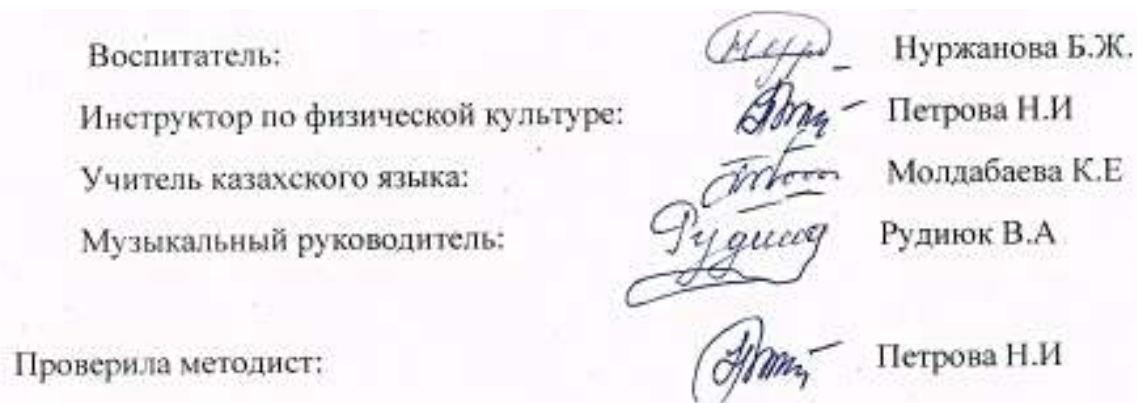 Воспитатель: Нуржанова Б.Ж.
Инструктор по физической культуре: Петрова Н.И
Учитель казахского языка: Молдабаева К.Е
Музыкальный руководитель: Рудиюк В.А
Проверила методист: Петрова Н.И